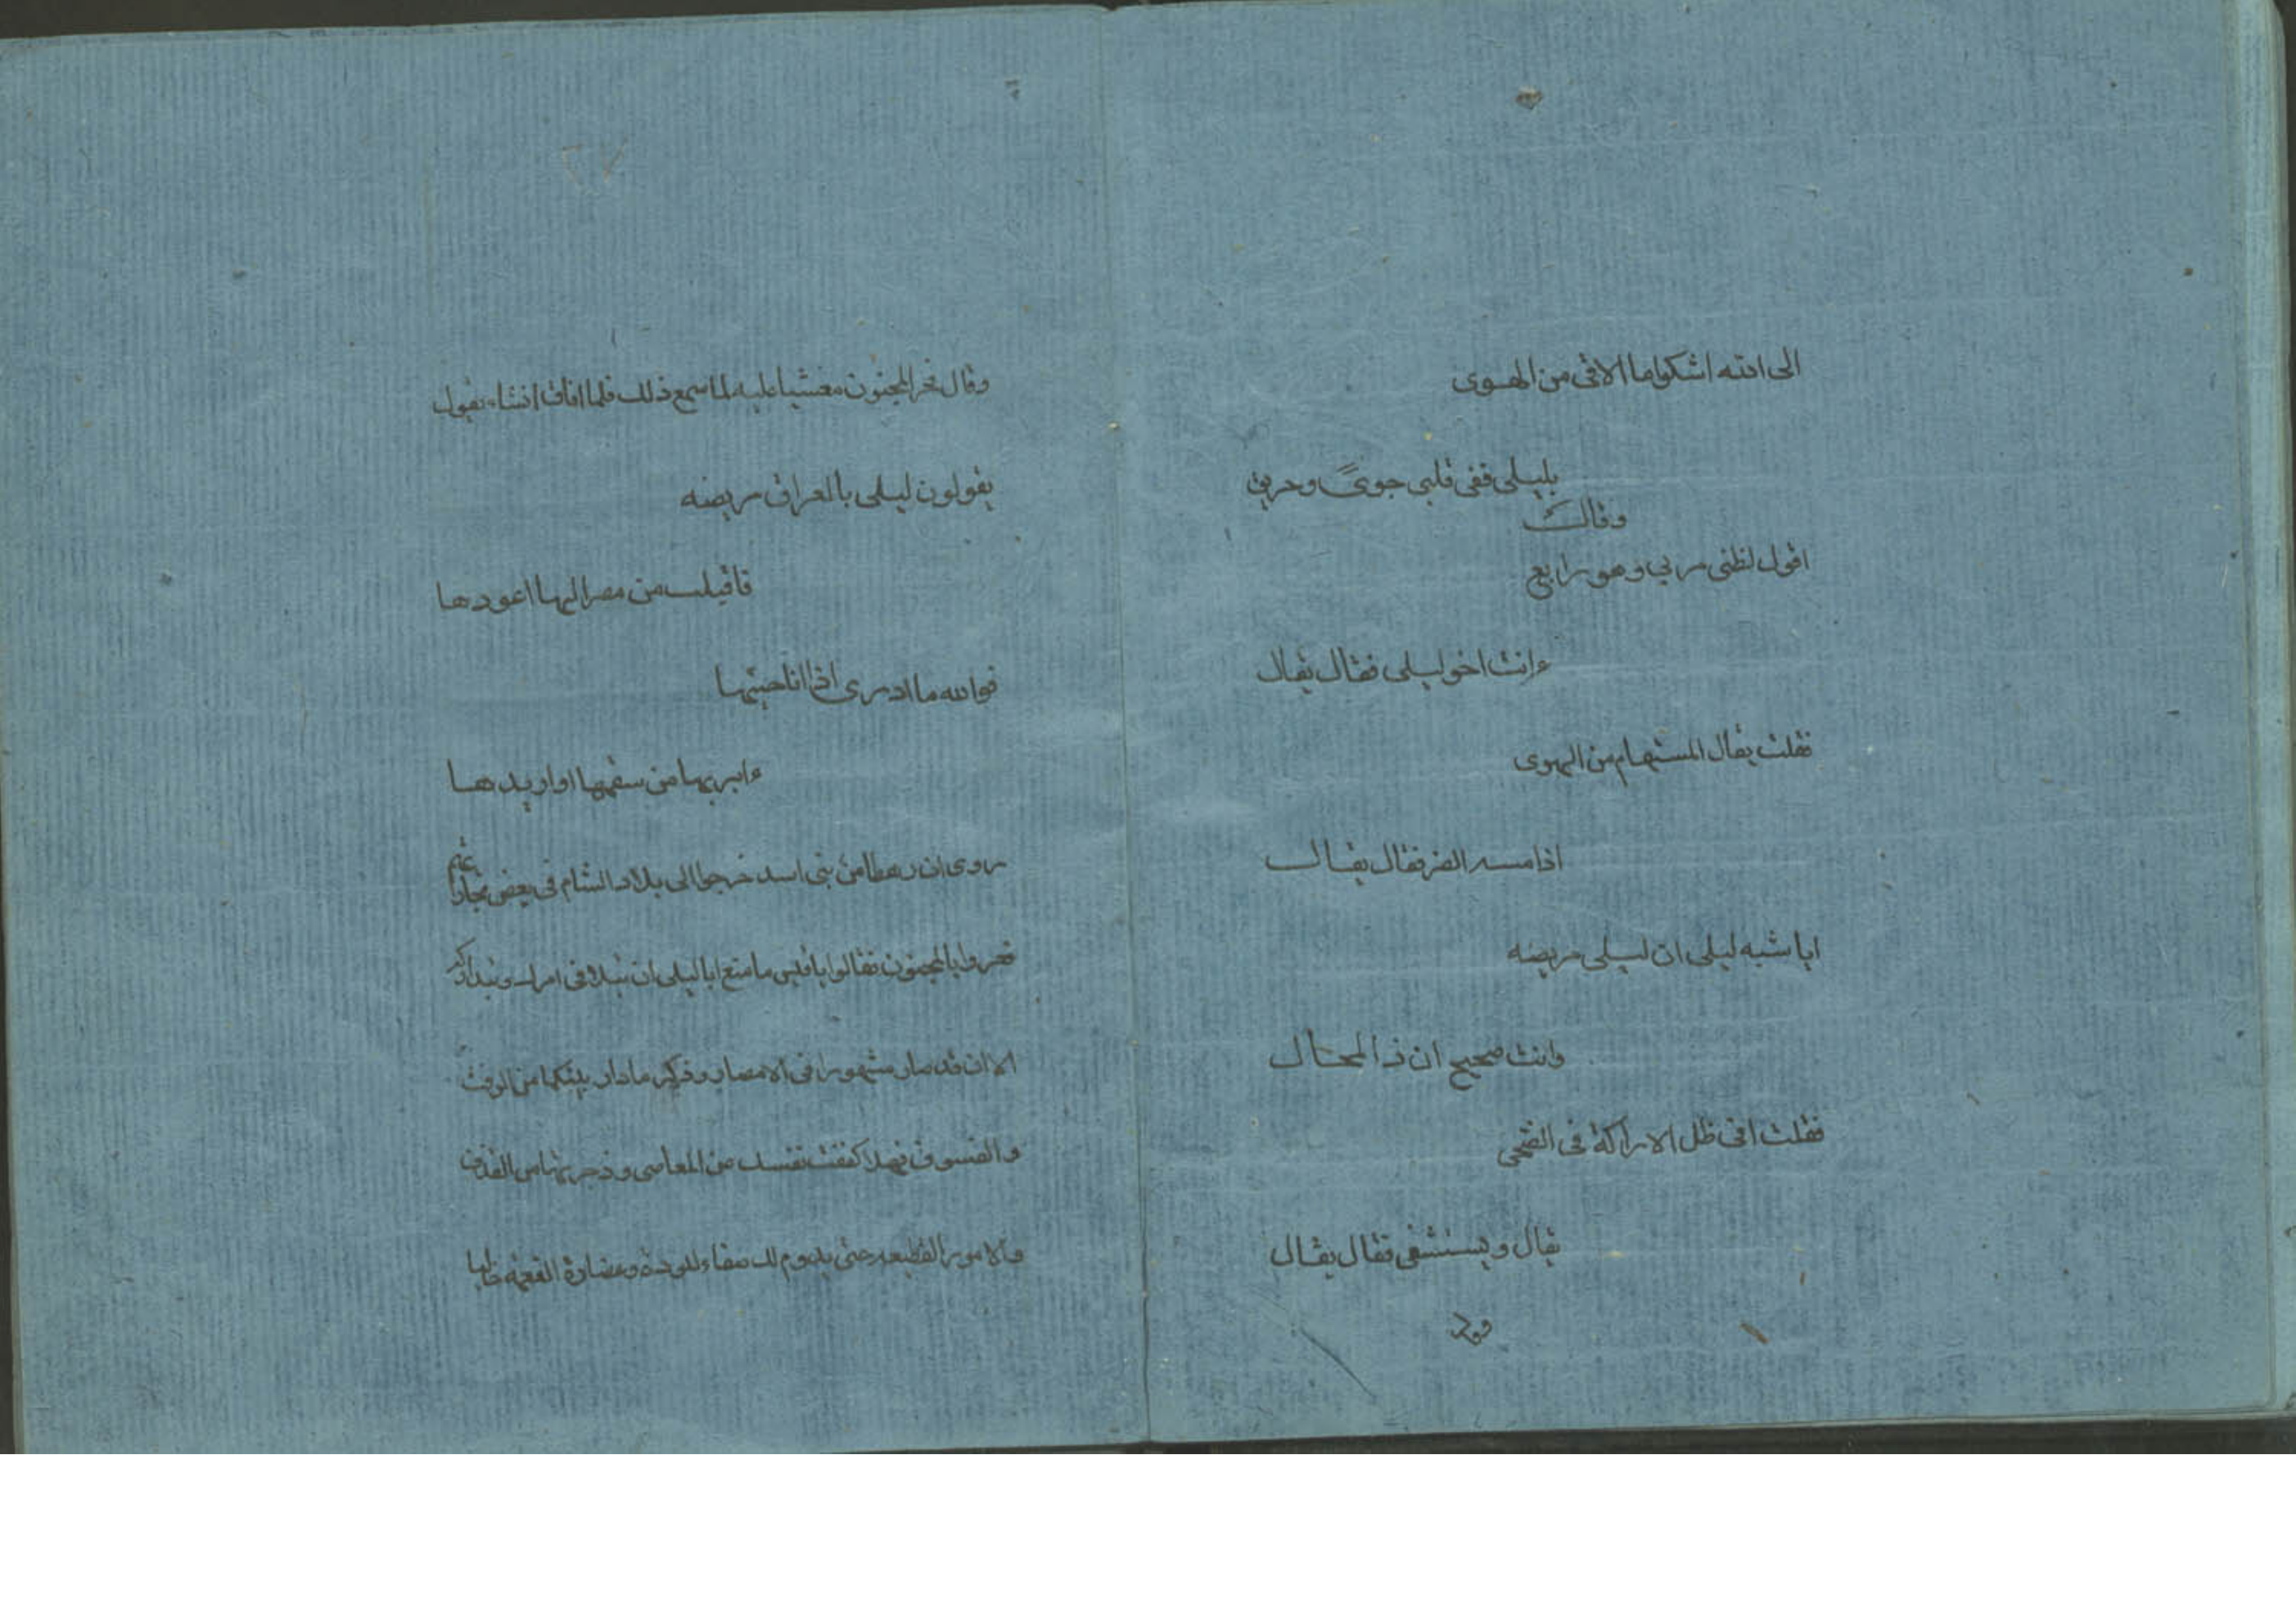 الى الله اشكوا ما الاقى من الهوى
بليلى ففى قلبى جوىً وحريق
وقال
اقول لظبى مر بى وهو راتع
ءانت اخو ليلى فقال يقال
فقلت يقال المستهام من الهوى
اذا مسه الضر فقال يقال
ايا شبه ليلى ان ليلى مريضه
وانت صحيح ان ذا لمحال
فقلت افى ظل الاراكة فى الضحى
يقال ويستشفى فقال يقال
٢٧
وقال فخر المجنون مغشيا عليه لما سمع ذلك فلما افاق انشاء يقول
يقولون ليلى بالعراق مريضه
فاقبلت من مصر اليها اعودها
فوالله ما ادرى اذا انا جئتها
ءابريها من سقمها او ازيدها
روى ان رهطا من بنى اسد خرجوا الى بلاد الشام فى بعض تجاراتهم
فمروا بالمجنون فقالوا يا قيس ما منع ابا ليلى ان
الا ان قد صار مشهورا فى الامصار وذكر ما دار بينكما من الرفث
والفسوق فهلا كففت نفسك عن المعاصى وزجرتها من القذف
والامور الفظيعه حتى يدوم لك صفاء المودة وغضارة